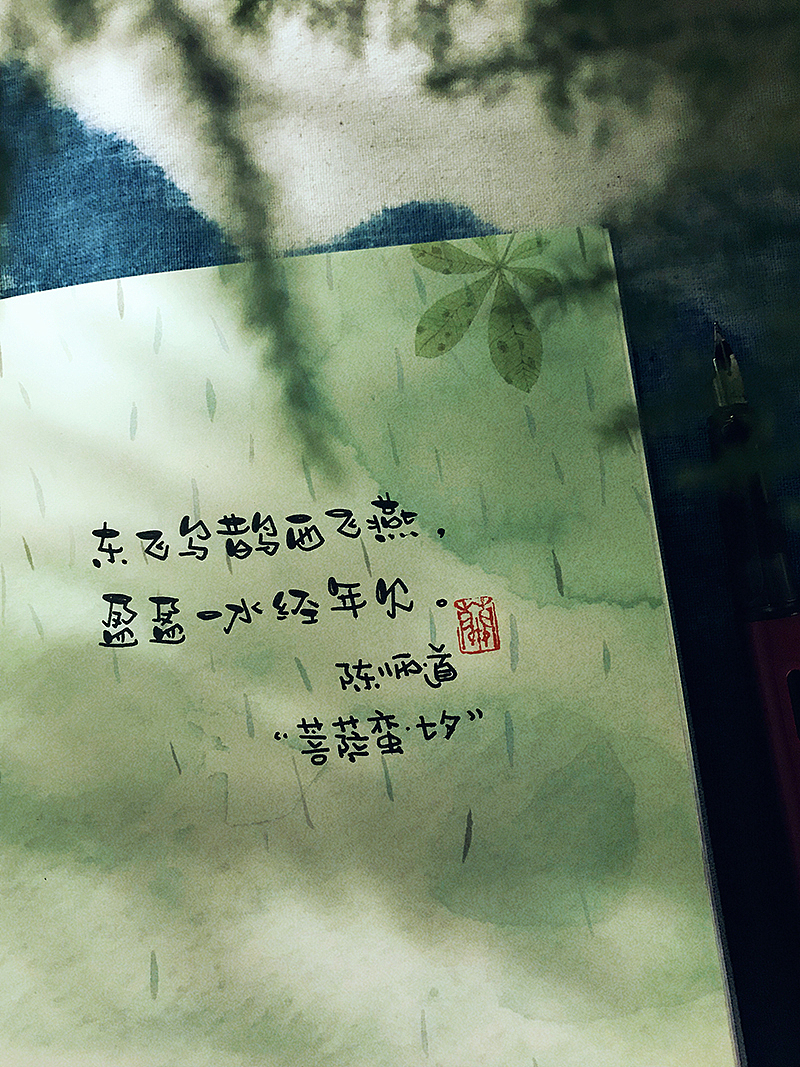 东飞乌鹊西飞燕，
盈盈一水经年见。
陈师道
“菩萨蛮·七夕”